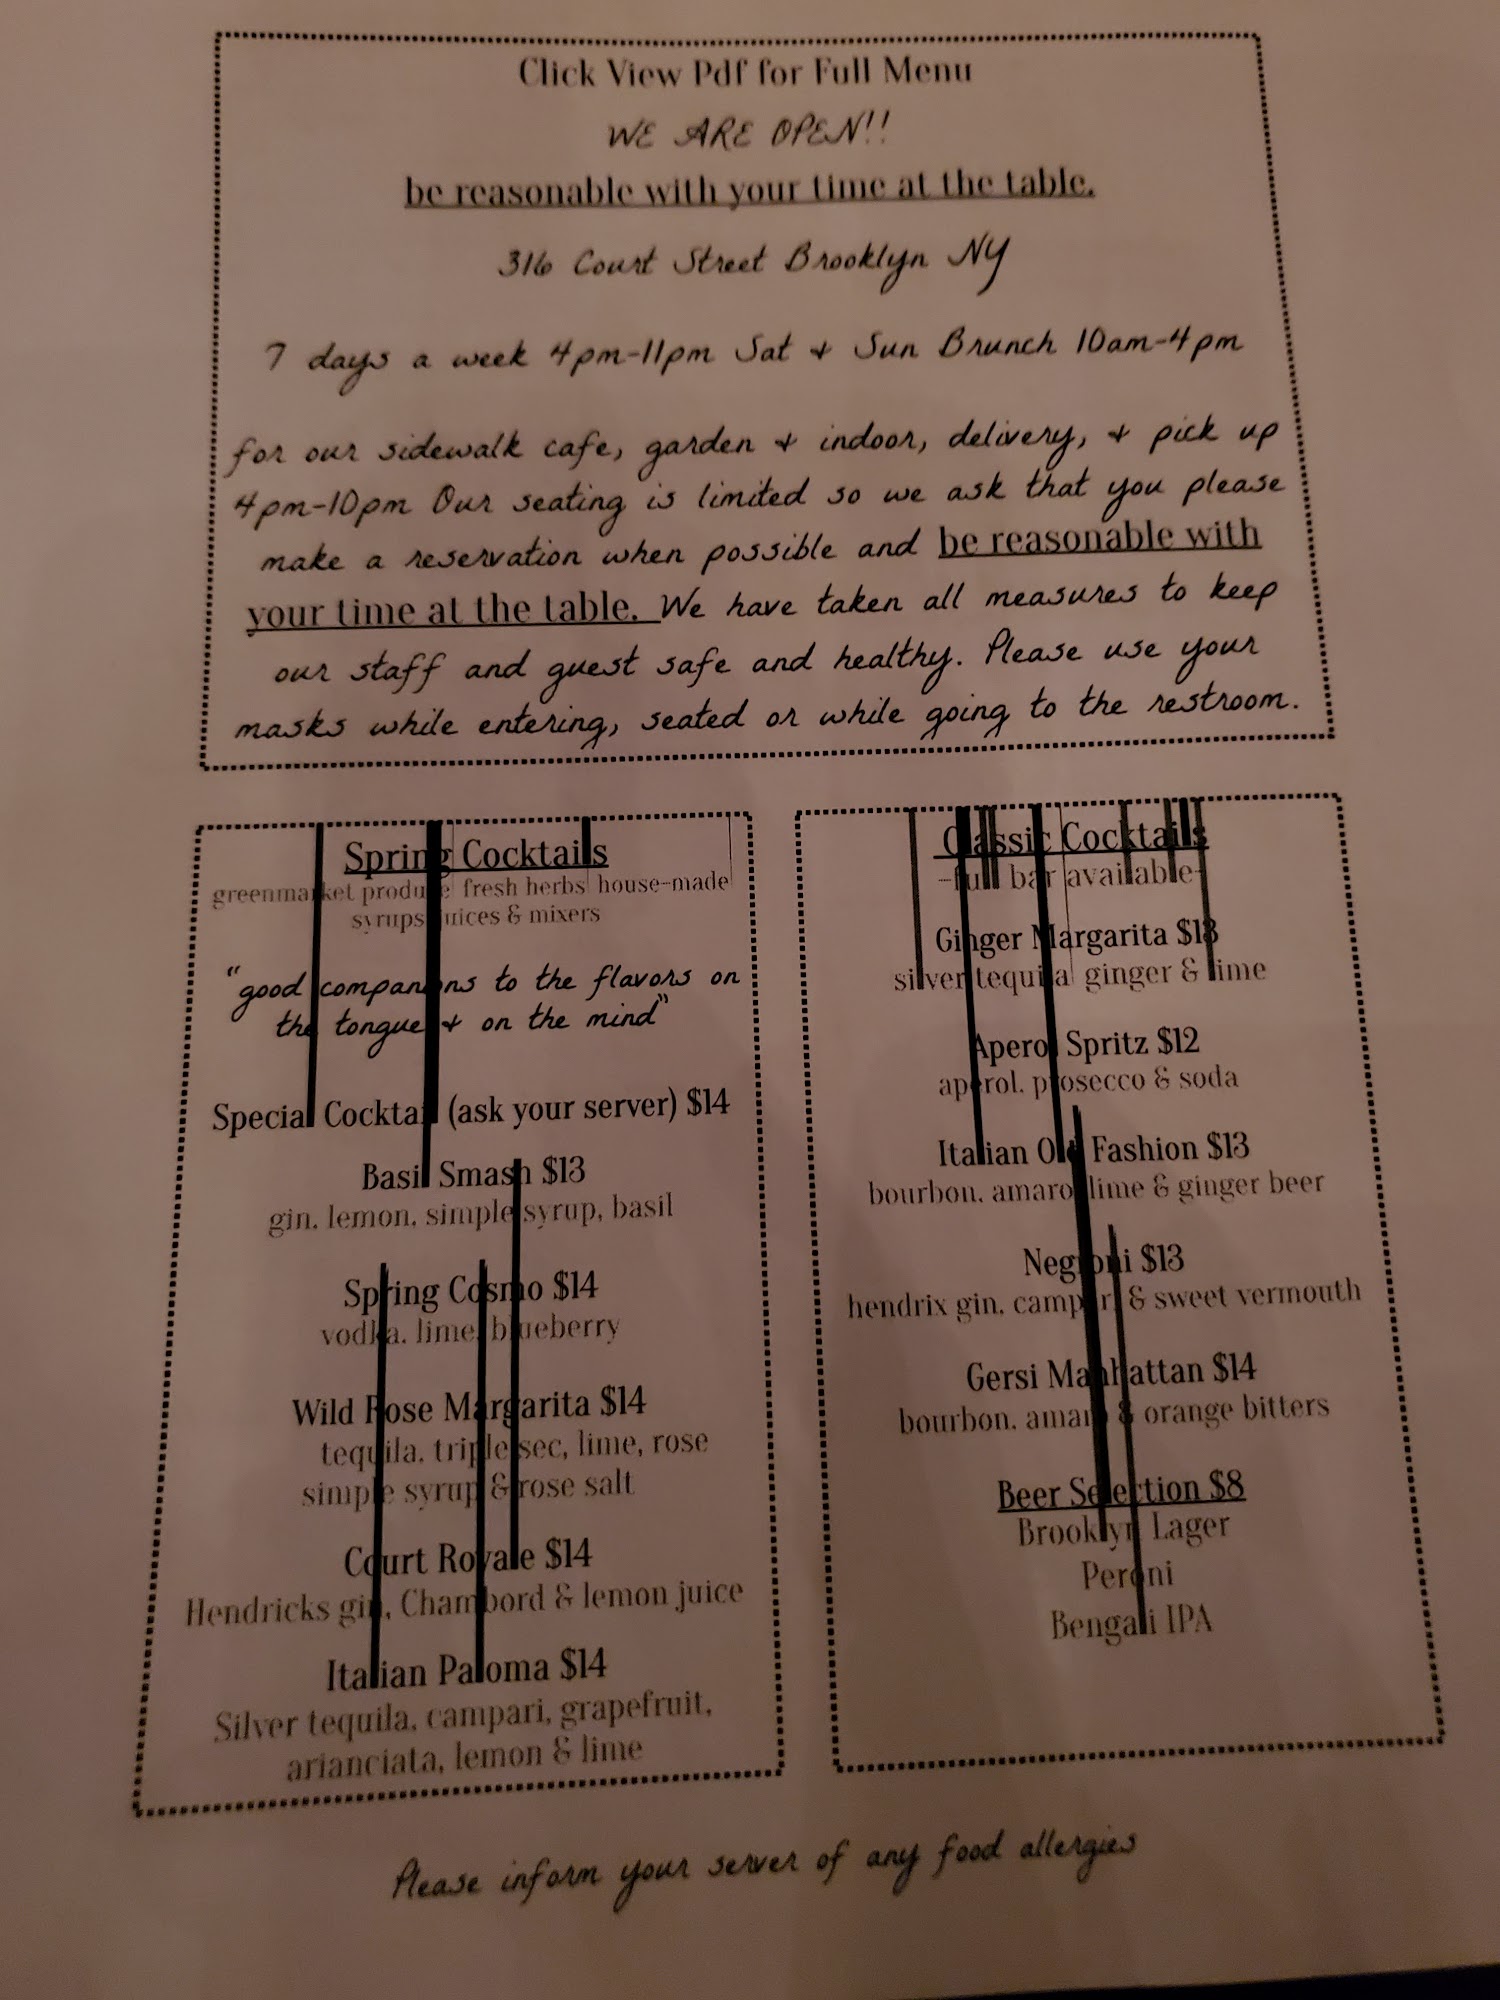 Click View Pdf for Full Menu
WE ARE OPEN!!
be reasonable with your time at the table.
316 Court Street Brooklyn NY
7 days a week 4pm-11pm Sat & Sun Brunch 10am-4pm
for our sidewalk cafe, garden & indoor, delivery, & pick up
4pm-10pm Our seating is limited so we ask that you please
make a reservation when possible and be reasonable with
your time at the table. We have taken all measures to keep
our staff and guest safe and healthy. Please use your
masks while entering, seated or while going to the restroom.
Spring Cocktails
greenmarket produce fresh herbs house-made
syrups juices & mixers
"good companions to the flavors on
the tongue & on the mind"
Special Cocktail (ask your server) $14
Basil Smash $13
gin, lemon, simple syrup, basil
Spring Cosmo $14
vodka, lime, blueberry
Wild Rose Margarita $14
tequila, triple sec, lime, rose
simple syrup & rose salt
Court Royale $14
Hendricks gin, Chambord & lemon juice
Italian Paloma $14
Silver tequila, campari, grapefruit,
arianciata, lemon & lime
Classic Cocktails
-full bar available-
Ginger Margarita $13
silver tequila ginger & lime
Aperol Spritz $12
aperol, prosecco & soda
Italian Old Fashion $13
bourbon, amaro lime & ginger beer
Negroni $13
hendrix gin, campari & sweet vermouth
Gersi Manhattan $14
bourbon, amaro & orange bitters
Beer Selection $8
Brooklyn Lager
Peroni
Bengali IPA
Please inform your server of any food allergies